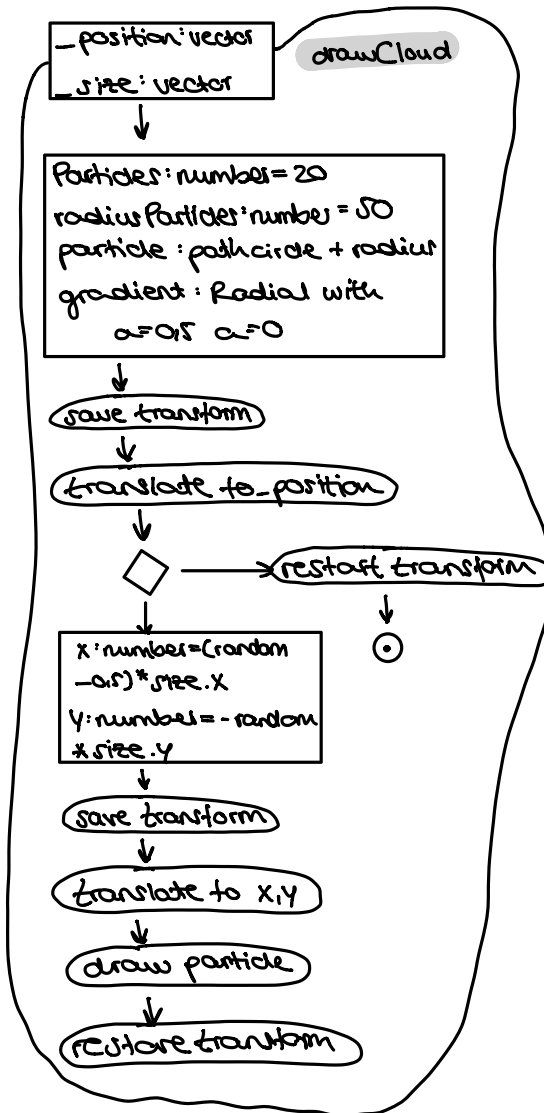 _position: vector
_size: vector
drawCloud
Particles: number = 20
radiusParticles: number = 50
particle: path circle + radius
gradient: Radial with
a=0,5 a=0
save transform
translate to _position
restart transform
x: number = (random
-0,5)* size.x
y: number = - random
* size.y
save transform
translate to x,y
draw particle
restore transform